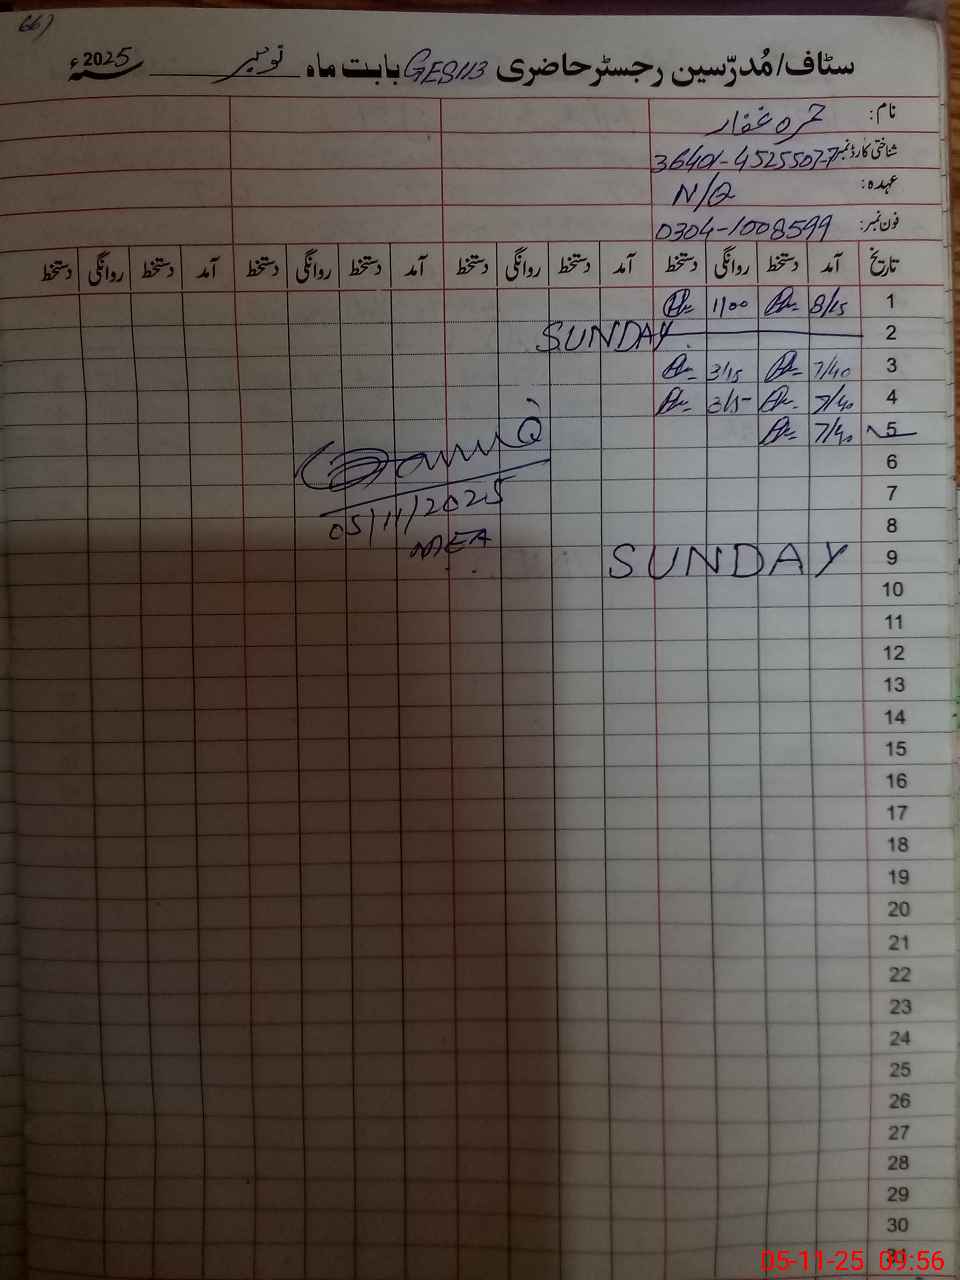 667
سٹاف/مُدرّسین رجسٹر حاضری GES113 بابت ماہ نومبر سنہ 2025ء
نام: حمزہ غفار
شناختی کارڈ نمبر: 36401-4525507-7
عہدہ: N/Q
فون نمبر: 0304-1008599
تاریخ آمد دستخط روانگی دستخط آمد دستخط روانگی دستخط آمد دستخط روانگی دستخط آمد دستخط روانگی دستخط
1 8/15 1/00
2 SUNDAY
3 7/40 3/15
4 7/40 3/15
5 7/40
6
7
05/11/2025
8
MEA
9 SUNDAY
10
11
12
13
14
15
16
17
18
19
20
21
22
23
24
25
26
27
28
29
30
31
05-11-25 09:56